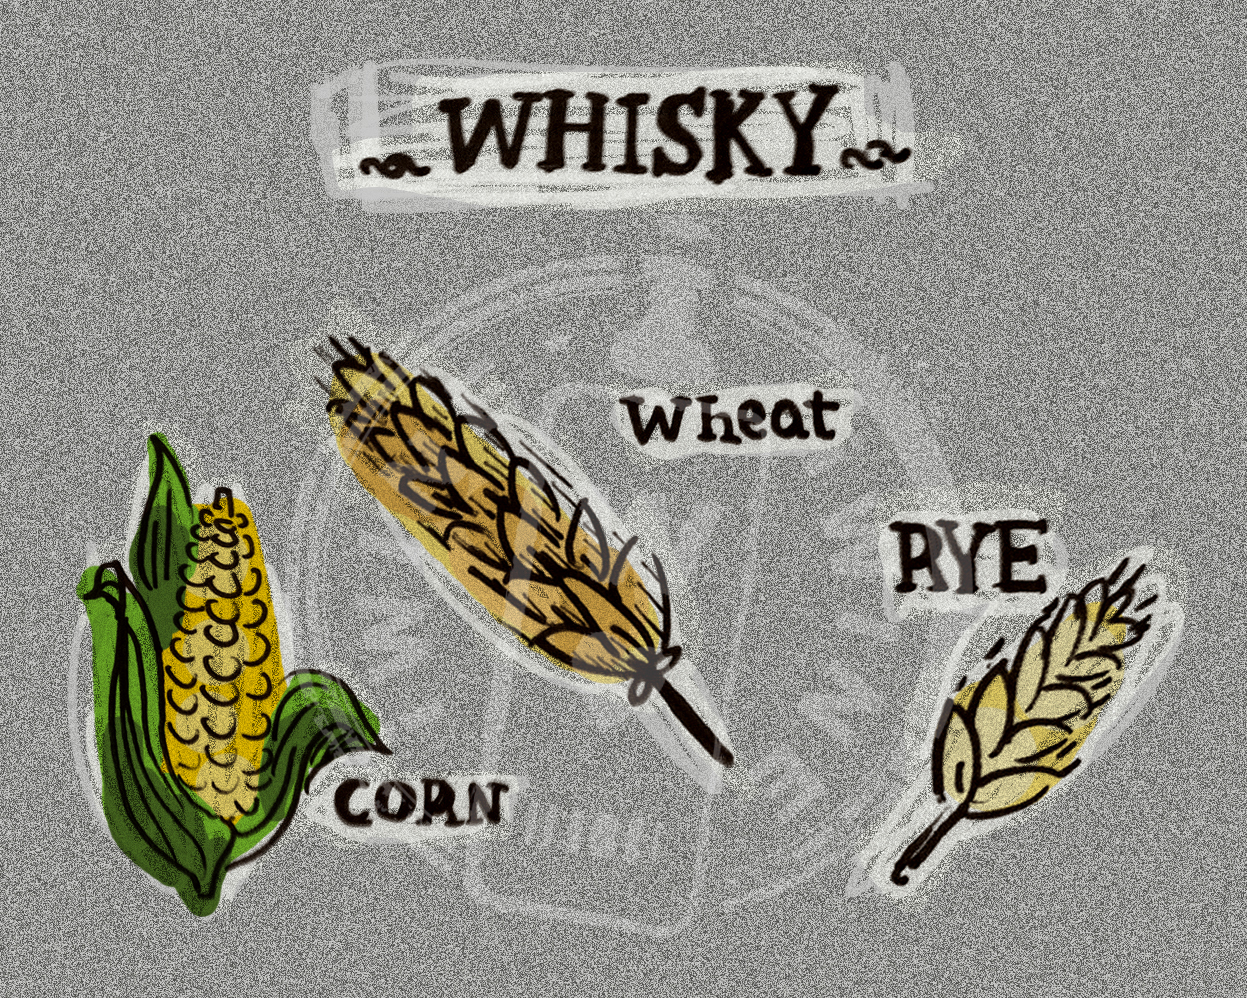 WHISKY
Wheat
RYE
CORN